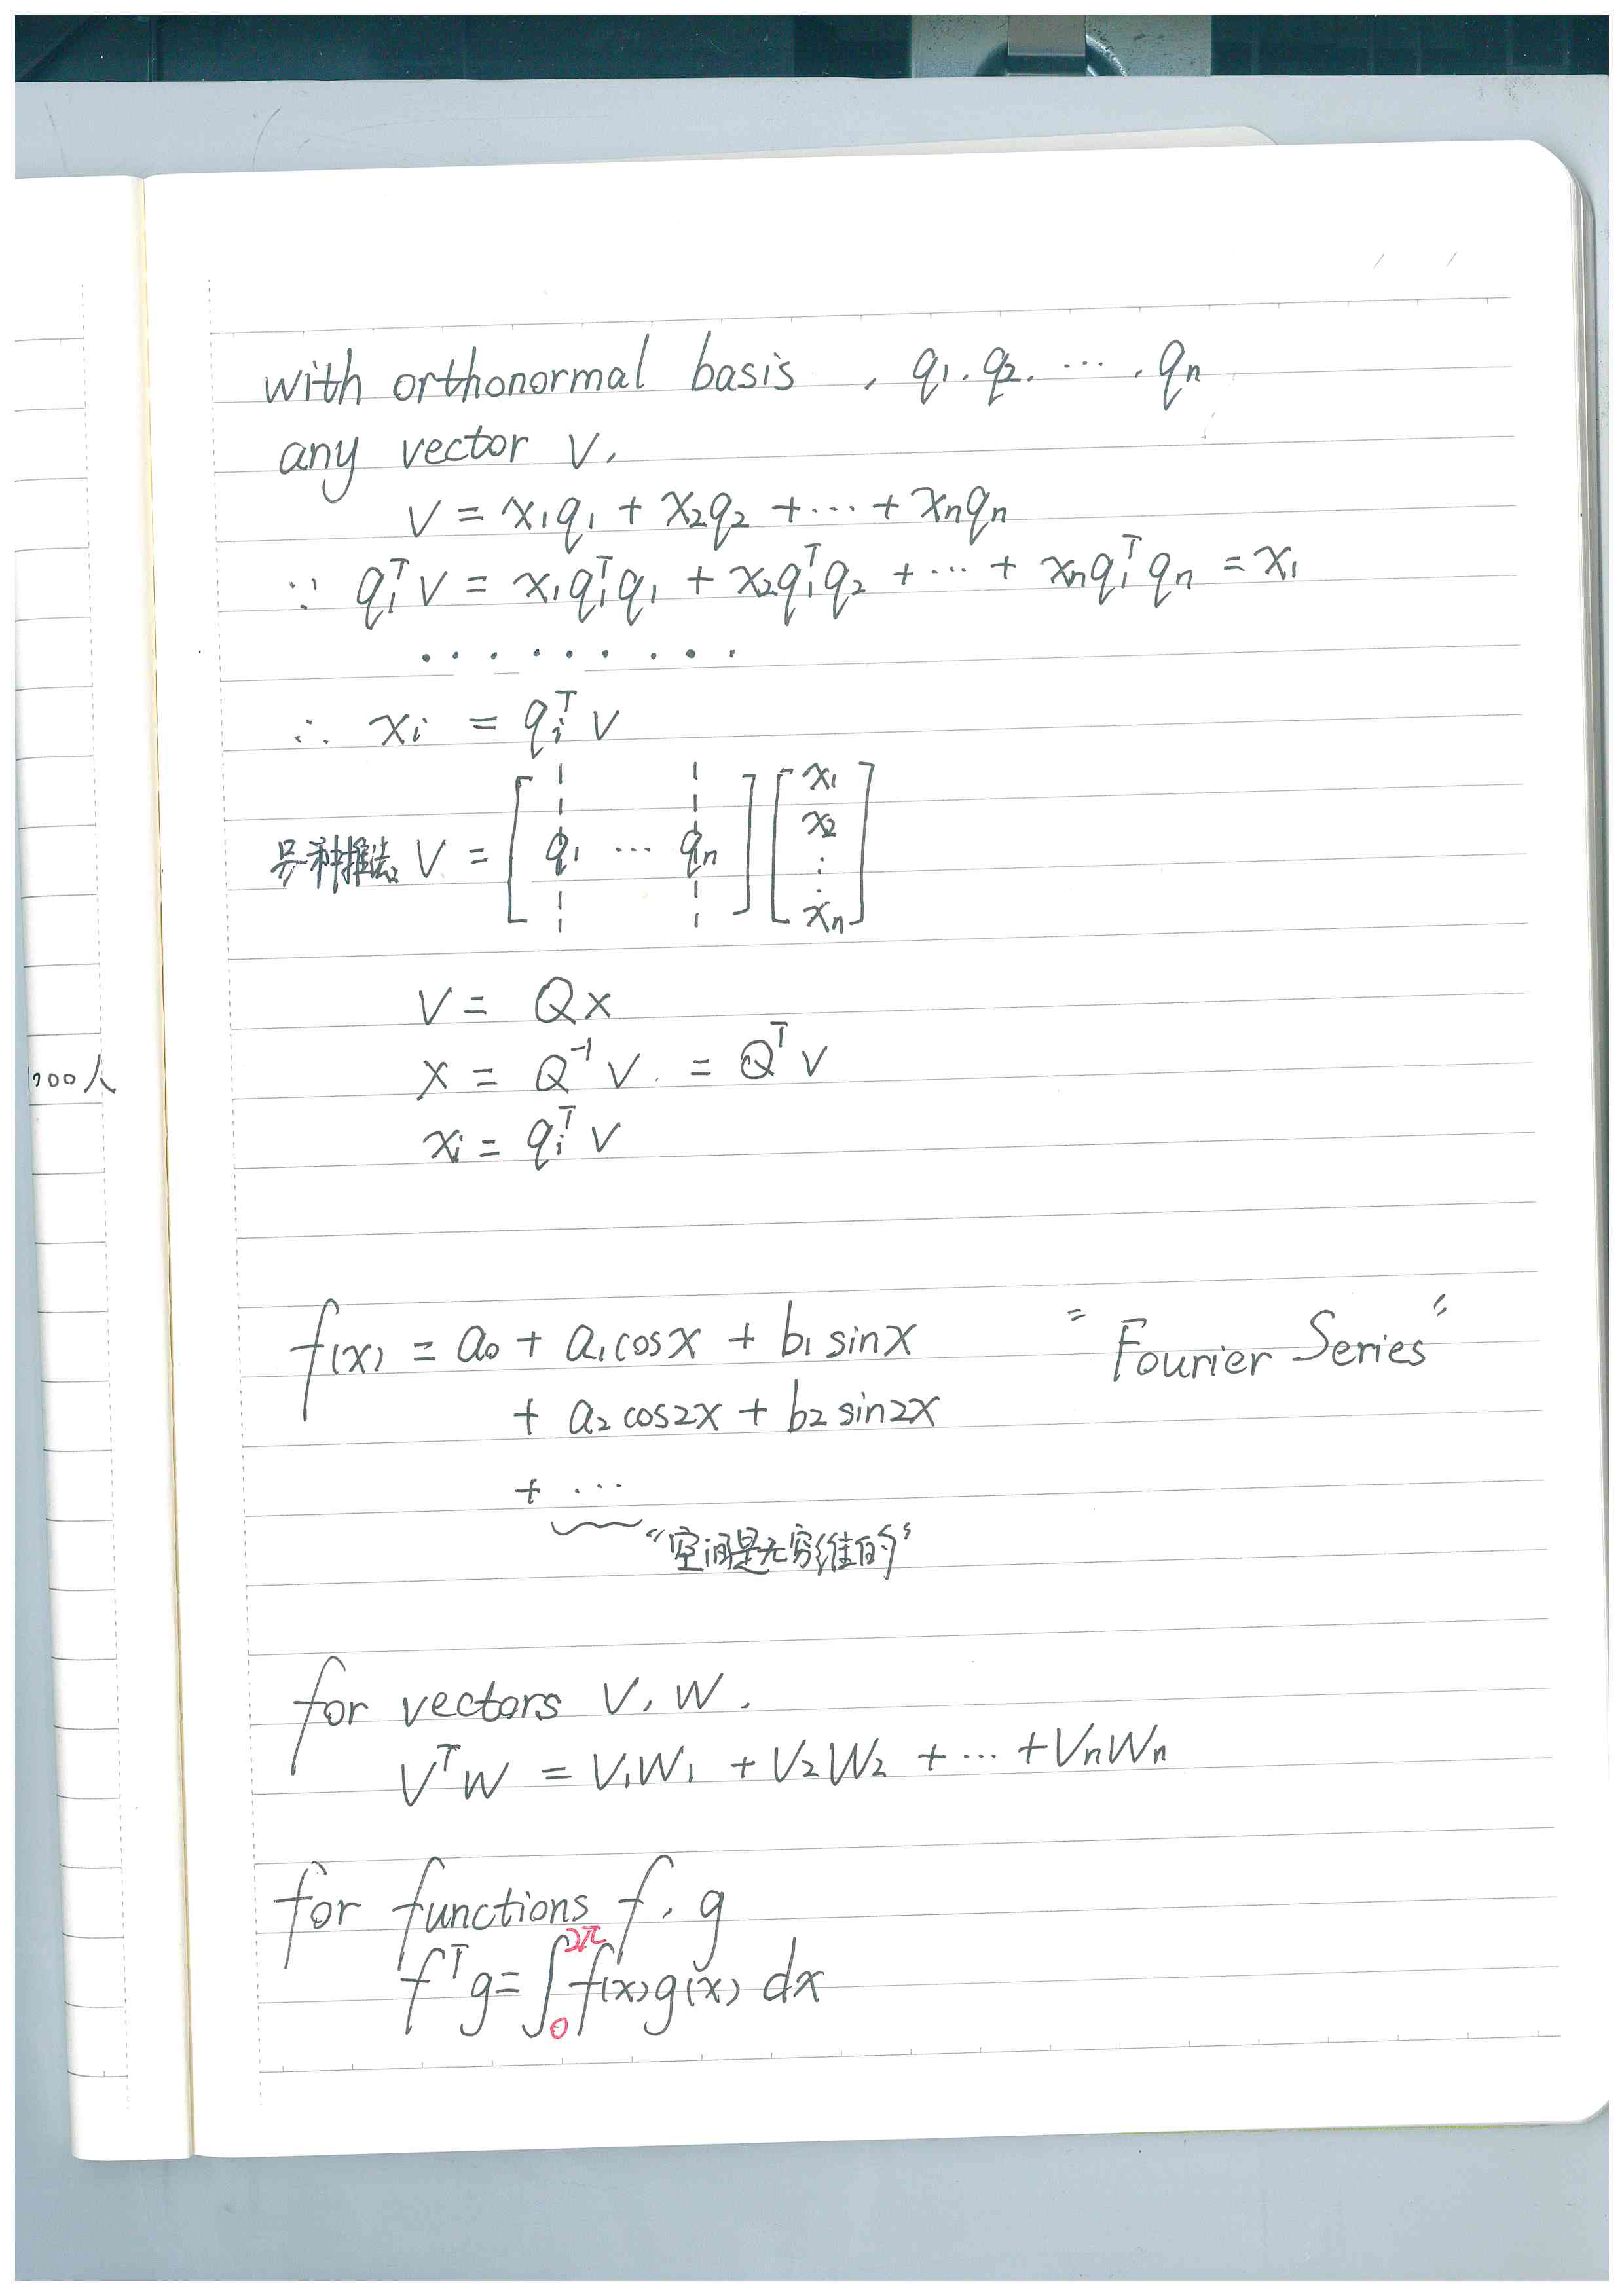 with orthonormal basis , q₁, q₂, ⋯ , qₙ
any vector V,
V = x₁q₁ + x₂q₂ + ⋯ + xₙqₙ
∵ q₁ᵀV = x₁q₁ᵀq₁ + x₂q₁ᵀq₂ + ⋯ + xₙq₁ᵀqₙ = x₁
· · · · · · · · ·
∴ xᵢ = qᵢᵀ V
另一种推法 V = [ q₁ ⋯ qₙ ] [ x₁ x₂ ⋮ xₙ ]
V = Qx
x = Q⁻¹ V = Qᵀ V
1000人
xᵢ = qᵢᵀ V
f(x) = a₀ + a₁cosx + b₁sinx "Fourier Series"
+ a₂cos2x + b₂sin2x
+ ⋯
"空间是无穷维的"
for vectors V, W.
VᵀW = V₁W₁ + V₂W₂ + ⋯ + VₙWₙ
for functions f, g
fᵀg = ∫₀²π f(x)g(x) dx